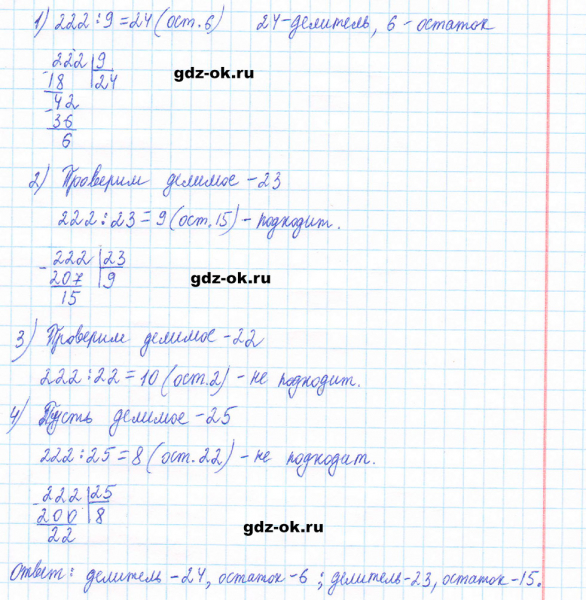 1) 222 : 9 = 24 (ост. 6) 24 - делитель, 6 - остаток
- 222 | 9
18 | 24
gdz-ok.ru
- 42
36
6
2) Проверим делимое - 23
222 : 23 = 9 (ост. 15) - подходит.
- 222 | 23
207 | 9
gdz-ok.ru
15
3) Проверим делимое - 22
222 : 22 = 10 (ост. 2) - не подходит.
4) Пусть делимое - 25
222 : 25 = 8 (ост. 22) - не подходит.
- 222 | 25
200 | 8
gdz-ok.ru
22
Ответ: делитель - 24, остаток - 6 ; делитель - 23, остаток - 15.